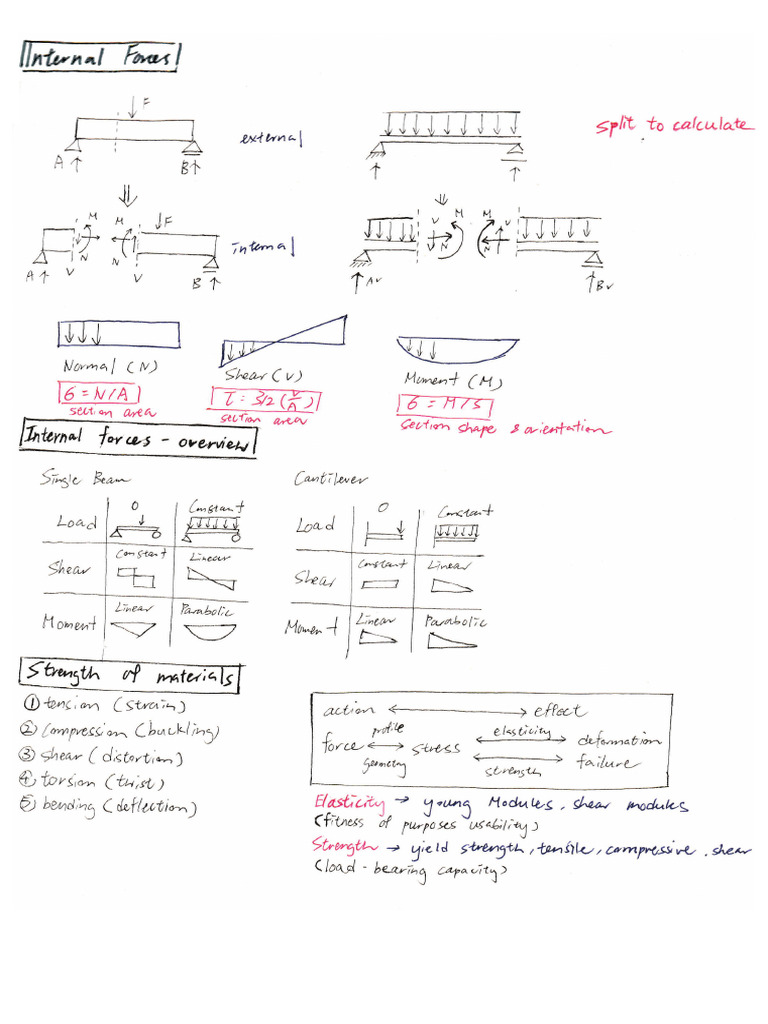 Internal Forces
F
external
split to calculate
A
B
M
M
F
V
M
M
V
N
N
internal
N
N
A
V
V
B
Av
Bv
Normal (N)
Shear (V)
Moment (M)
σ = N/A
τ = 3/2 (V/A)
σ = M/S
section area
section area
section shape & orientation
Internal forces - overview
Single Beam
Cantilever
Load
O
Constant
Load
O
Constant
Shear
Constant
Linear
Shear
Constant
Linear
Moment
Linear
Parabolic
Moment
Linear
Parabolic
Strength of materials
① tension (strain)
② compression (buckling)
③ shear (distortion)
④ torsion (twist)
⑤ bending (deflection)
action ↔ effect
profile
elasticity
force ↔ stress ↔ deformation
geometry
strength
failure
Elasticity → young Modules, shear modules
(fitness of purposes usability)
Strength → yield strength, tensile, compressive, shear
(load-bearing capacity)